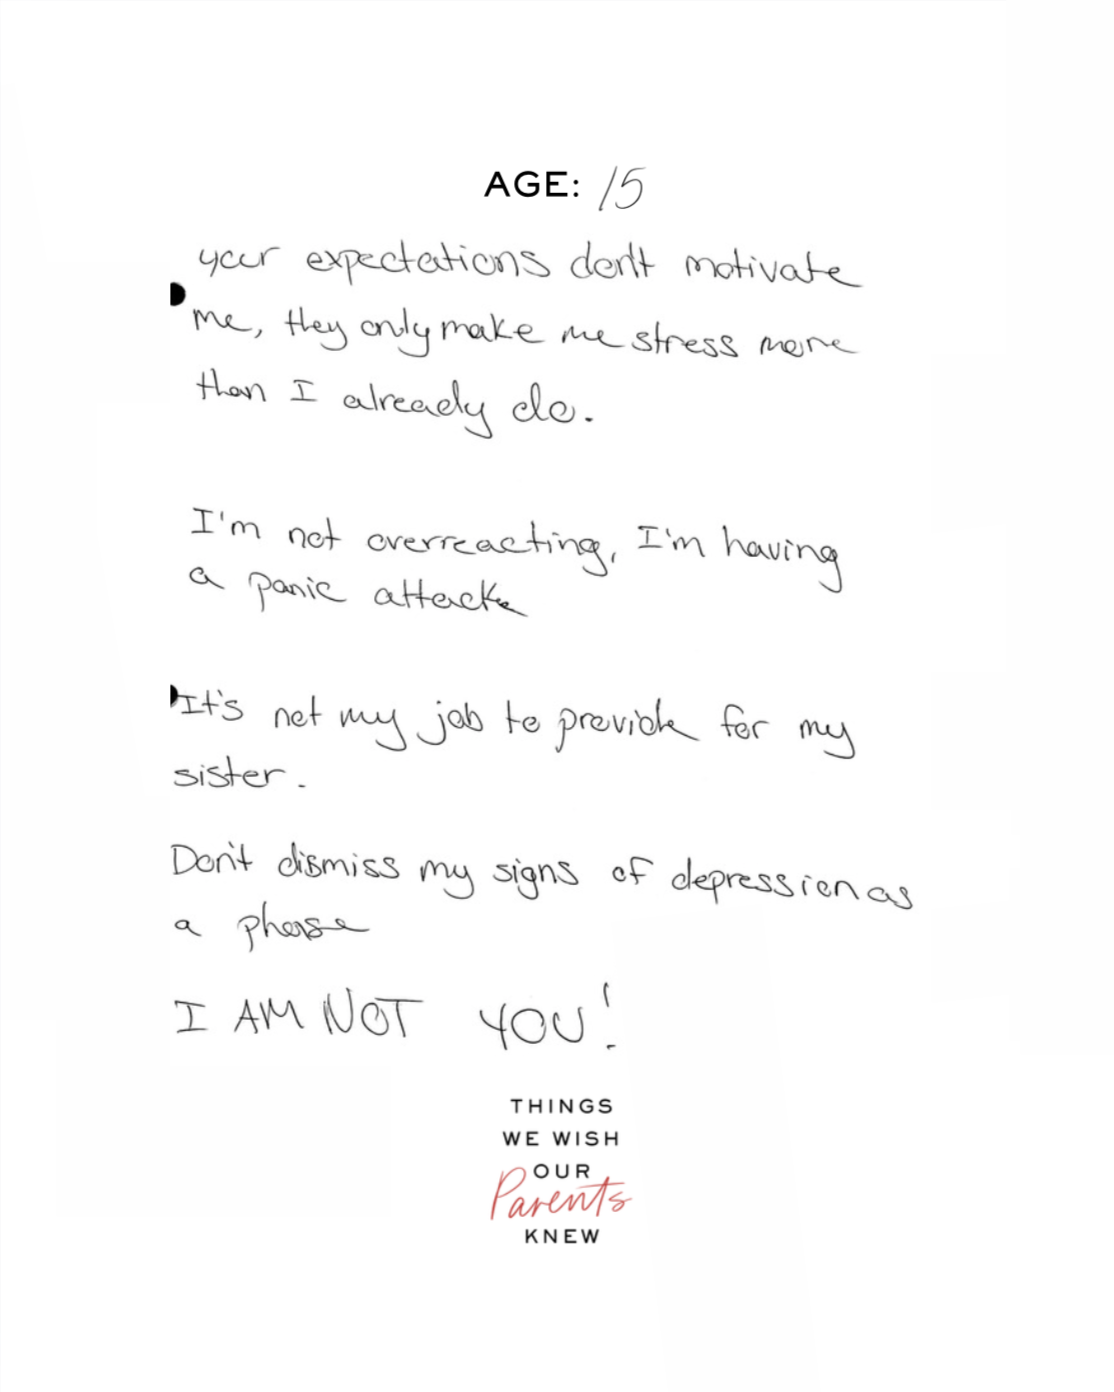 AGE: 15
your expectations don't motivate
me, they only make me stress more
than I already do.
I'm not overreacting, I'm having
a panic attack
It's not my job to provide for my
sister.
Don't dismiss my signs of depression as
a phase
I AM NOT YOU!
THINGS
WE WISH
OUR
Parents
KNEW